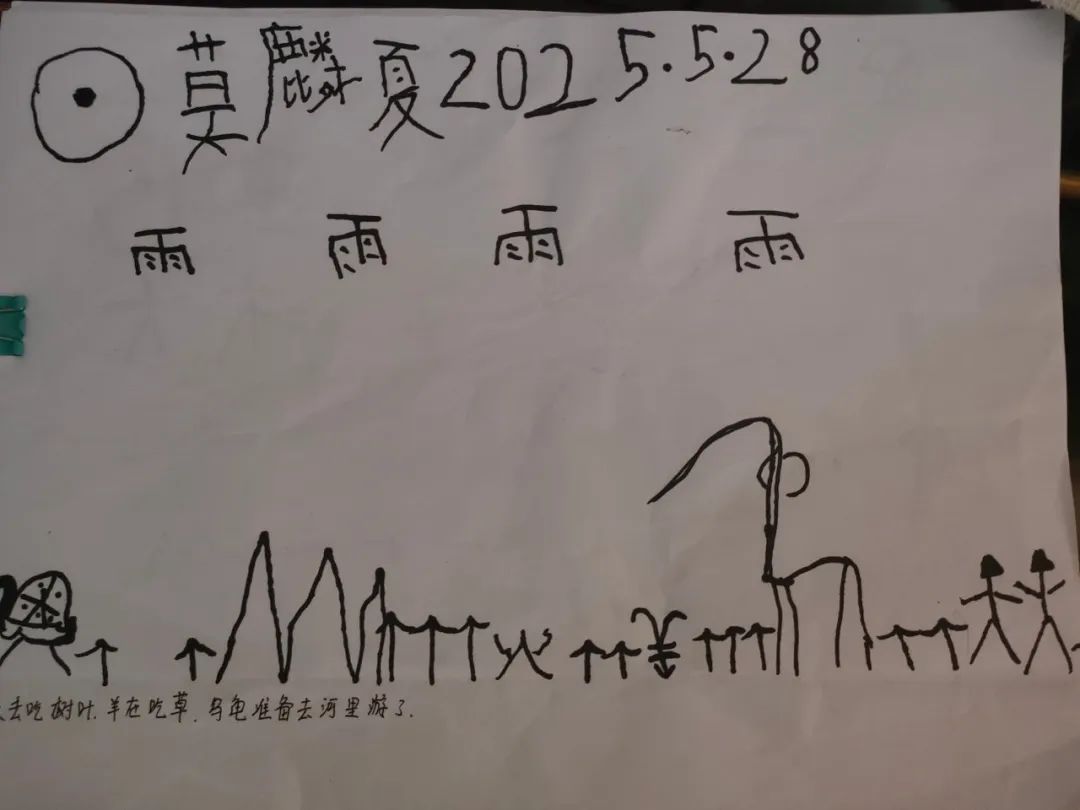 莫麟夏2025·5·28
雨 雨 雨 雨
去吃树叶.羊在吃草.乌龟准备去河里游了.